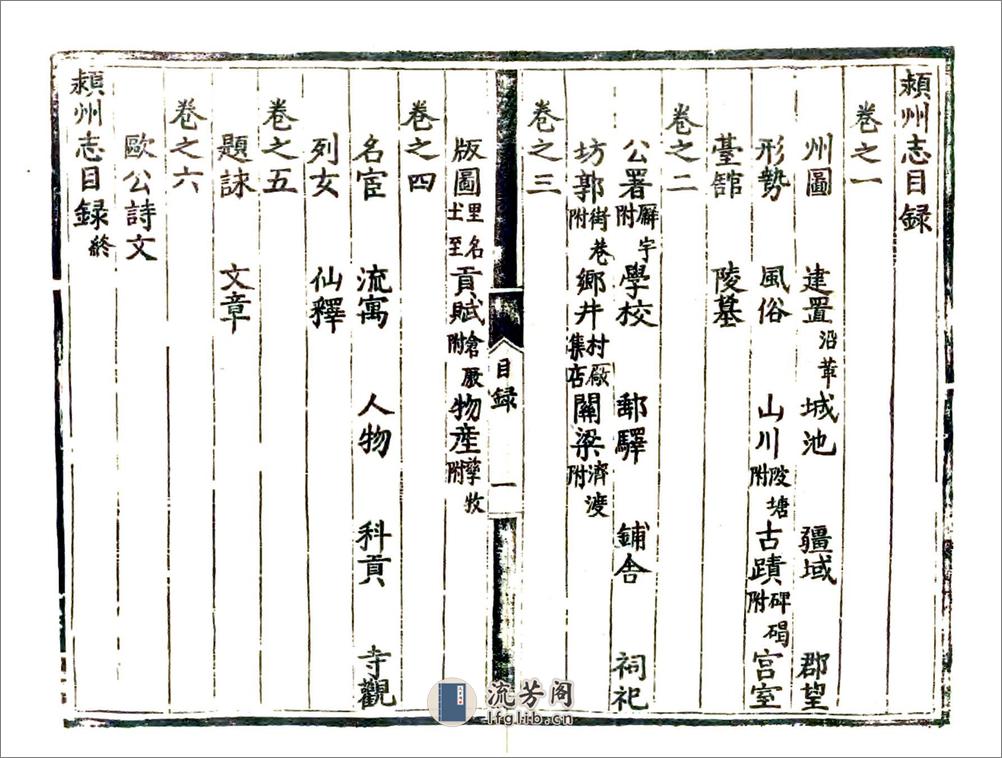 頴州志目録
卷之一
州圖 建置沿革 城池 疆域 郡望
形勢 風俗 山川陂塘附 古蹟碑碣附 宫室
臺舘 陵墓
卷之二
公署廨宇附 學校 郵驛 鋪舍 祠祀
坊郭街巷附 郷井村廠集店 關梁濟渡附
卷之三
版圖里名土至 貢賦倉厫附 物産孳牧附
卷之四
名宦 流寓 人物 科貢 寺觀
列女 仙釋
卷之五
題詠 文章
卷之六
歐公詩文
頴州志目録終
目録
一
流芳阁
lfglib.cn